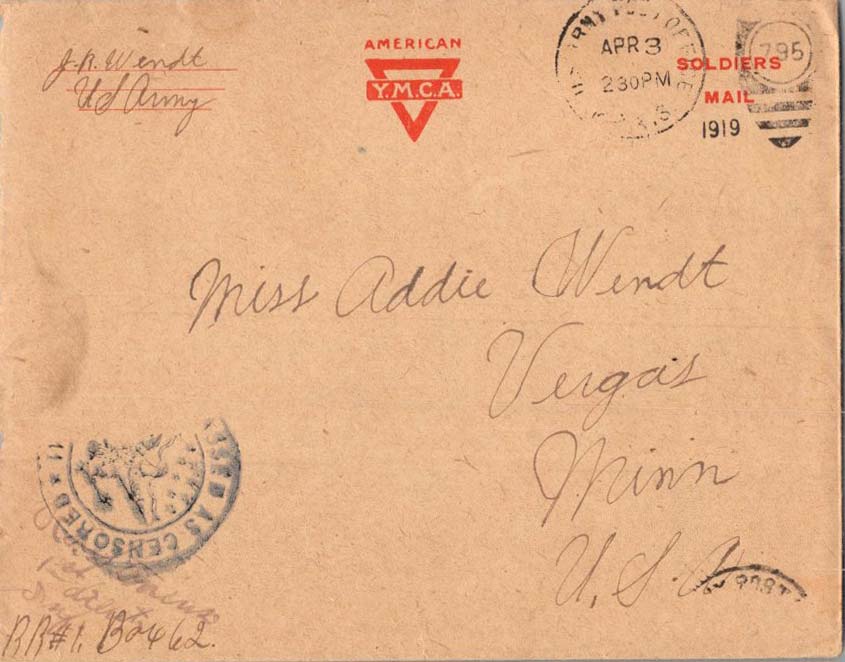 J. R. Wendt
US Army
AMERICAN
Y.M.C.A.
U.S. ARMY POST OFFICE
APR 3
230PM
795
SOLDIERS
MAIL
1919
Miss Addie Wendt
Vergas
Minn
U.S.A
PASSED AS CENSORED
1st
RR#1. B 462.